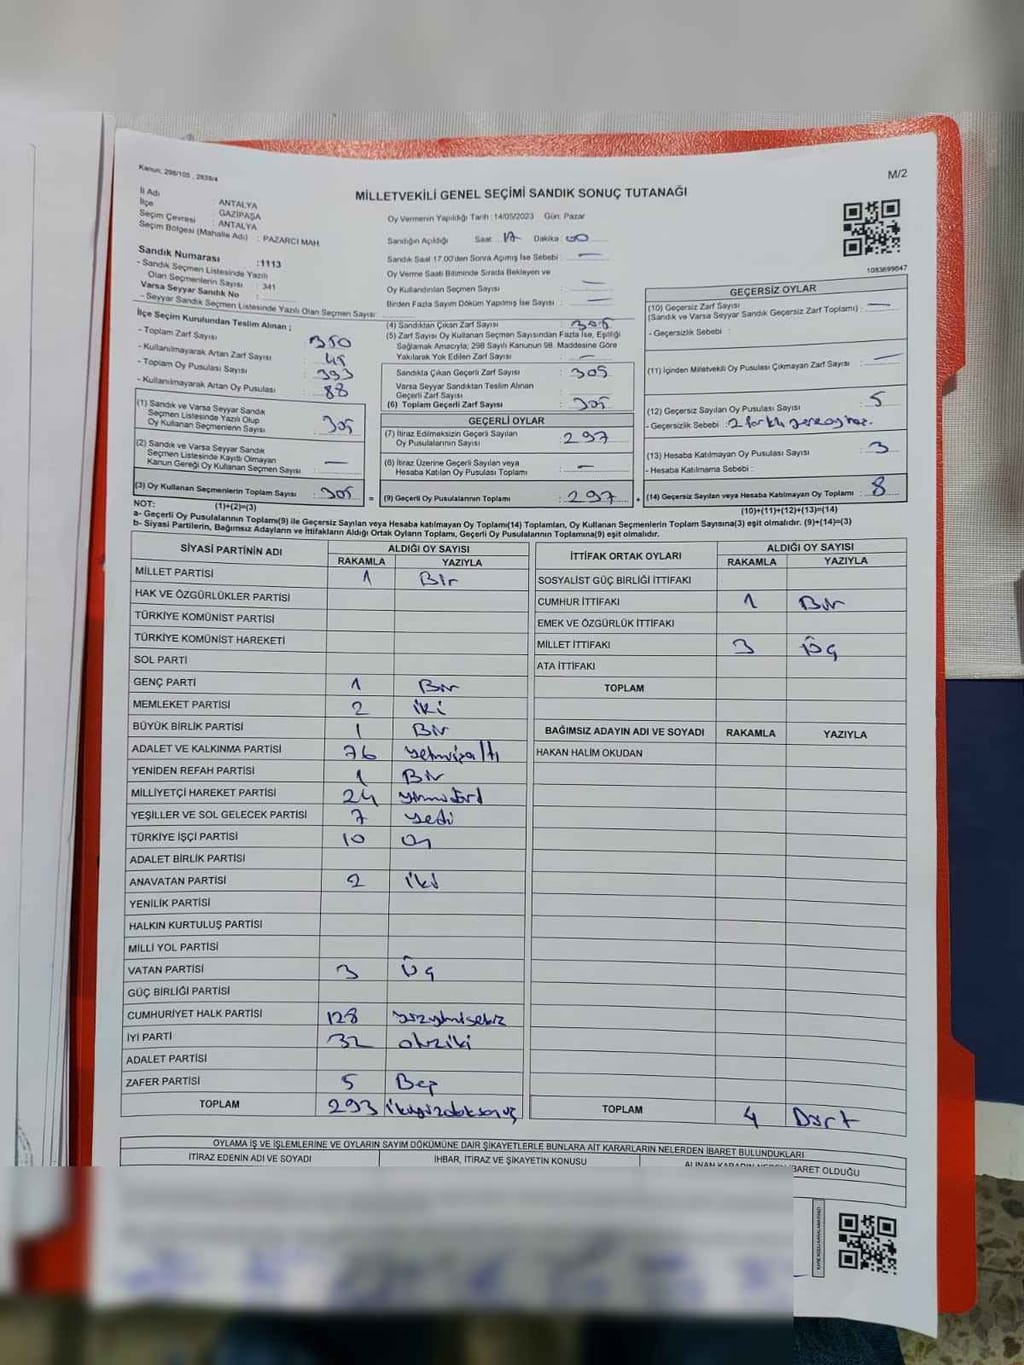 Kanun, 298/105 , 2839/4
M/2
MİLLETVEKİLİ GENEL SEÇİMİ SANDIK SONUÇ TUTANAĞI
İl Adı : ANTALYA
İlçe : GAZİPAŞA
Seçim Çevresi : ANTALYA
Seçim Bölgesi (Mahalle Adı) : PAZARCI MAH.
Sandık Numarası :1113
- Sandık Seçmen Listesinde Yazılı
Olan Seçmenlerin Sayısı : 341
Varsa Seyyar Sandık No :
- Seyyar Sandık Seçmen Listesinde Yazılı Olan Seçmen Sayısı:
Oy Vermenin Yapıldığı Tarih : 14/05/2023 Gün: Pazar
Sandığın Açıldığı Saat : 17 Dakika : 00
Sandık Saat 17.00'den Sonra Açılmış İse Sebebi : —
Oy Verme Saati Bitiminde Sırada Bekleyen ve
Oy Kullandırılan Seçmen Sayısı : —
Birden Fazla Sayım Döküm Yapılmış İse Sayısı : —
1083699647
İlçe Seçim Kurulundan Teslim Alınan ;
- Toplam Zarf Sayısı : 350
- Kullanılmayarak Artan Zarf Sayısı : 45
- Toplam Oy Pusulası Sayısı : 393
- Kullanılmayarak Artan Oy Pusulası : 88
(1) Sandık ve Varsa Seyyar Sandık
Seçmen Listesinde Yazılı Olup
Oy Kullanan Seçmenlerin Sayısı : 305
(2) Sandık ve Varsa Seyyar Sandık
Seçmen Listesinde Kayıtlı Olmayan
Kanun Gereği Oy Kullanan Seçmen Sayısı : —
(3) Oy Kullanan Seçmenlerin Toplam Sayısı : 305 =
(1)+(2)=(3)
(4) Sandıktan Çıkan Zarf Sayısı : 305
(5) Zarf Sayısı Oy Kullanan Seçmen Sayısından Fazla İse, Eşitliği
Sağlamak Amacıyla; 298 Sayılı Kanunun 98. Maddesine Göre
Yakılarak Yok Edilen Zarf Sayısı : —
Sandıkta Çıkan Geçerli Zarf Sayısı : 305
Varsa Seyyar Sandıktan Teslim Alınan
Geçerli Zarf Sayısı :
(6) Toplam Geçerli Zarf Sayısı : 305
GEÇERLİ OYLAR
(7) İtiraz Edilmeksizin Geçerli Sayılan
Oy Pusulalarının Sayısı : 297
(8) İtiraz Üzerine Geçerli Sayılan veya
Hesaba Katılan Oy Pusulası Toplamı : —
(9) Geçerli Oy Pusulalarının Toplamı : 297 +
GEÇERSİZ OYLAR
(10) Geçersiz Zarf Sayısı : —
(Sandık ve Varsa Seyyar Sandık Geçersiz Zarf Toplamı)
- Geçersizlik Sebebi :
(11) İçinden Milletvekili Oy Pusulası Çıkmayan Zarf Sayısı : —
(12) Geçersiz Sayılan Oy Pusulası Sayısı : 5
- Geçersizlik Sebebi : 2 farklı
(13) Hesaba Katılmayan Oy Pusulası Sayısı : 3
- Hesaba Katılmama Sebebi :
(14) Geçersiz Sayılan veya Hesaba Katılmayan Oy Toplamı : 8
(10)+(11)+(12)+(13)=(14)
NOT:
a- Geçerli Oy Pusulalarının Toplamı(9) ile Geçersiz Sayılan veya Hesaba katılmayan Oy Toplamı(14) Toplamları, Oy Kullanan Seçmenlerin Toplam Sayısına(3) eşit olmalıdır. (9)+(14)=(3)
b- Siyasi Partilerin, Bağımsız Adayların ve İttifakların Aldığı Ortak Oyların Toplamı, Geçerli Oy Pusulalarının Toplamına(9) eşit olmalıdır.
SİYASİ PARTİNİN ADI ALDIĞI OY SAYISI
RAKAMLA YAZIYLA
MİLLET PARTİSİ 1 Bir
HAK VE ÖZGÜRLÜKLER PARTİSİ
TÜRKİYE KOMÜNİST PARTİSİ
TÜRKİYE KOMÜNİST HAREKETİ
SOL PARTİ
GENÇ PARTİ 1 Bir
MEMLEKET PARTİSİ 2 iki
BÜYÜK BİRLİK PARTİSİ 1 Bir
ADALET VE KALKINMA PARTİSİ 76 yetmişaltı
YENİDEN REFAH PARTİSİ 1 Bir
MİLLİYETÇİ HAREKET PARTİSİ 24 yirmidört
YEŞİLLER VE SOL GELECEK PARTİSİ 7 yedi
TÜRKİYE İŞÇİ PARTİSİ 10 On
ADALET BİRLİK PARTİSİ
ANAVATAN PARTİSİ 2 iki
YENİLİK PARTİSİ
HALKIN KURTULUŞ PARTİSİ
MİLLİ YOL PARTİSİ
VATAN PARTİSİ 3 Üç
GÜÇ BİRLİĞİ PARTİSİ
CUMHURİYET HALK PARTİSİ 128 yüzyirmisekiz
İYİ PARTİ 32 otuziki
ADALET PARTİSİ
ZAFER PARTİSİ 5 Beş
TOPLAM 293 ikiyüzdoksanüç
İTTİFAK ORTAK OYLARI ALDIĞI OY SAYISI
RAKAMLA YAZIYLA
SOSYALİST GÜÇ BİRLİĞİ İTTİFAKI
CUMHUR İTTİFAKI 1 Bir
EMEK VE ÖZGÜRLÜK İTTİFAKI
MİLLET İTTİFAKI 3 Üç
ATA İTTİFAKI
TOPLAM
BAĞIMSIZ ADAYIN ADI VE SOYADI RAKAMLA YAZIYLA
HAKAN HALİM OKUDAN
TOPLAM 4 Dört
OYLAMA İŞ VE İŞLEMLERİNE VE OYLARIN SAYIM DÖKÜMÜNE DAİR ŞİKAYETLERLE BUNLARA AİT KARARLARIN NELERDEN İBARET BULUNDUKLARI
İTİRAZ EDENİN ADI VE SOYADI İHBAR, İTİRAZ VE ŞİKAYETİN KONUSU ALINAN KARARIN NEDEN İBARET OLDUĞU